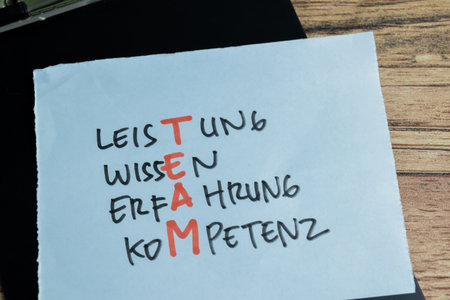 LEISTUNG
WISSEN
ERFAHRUNG
KOMPETENZ